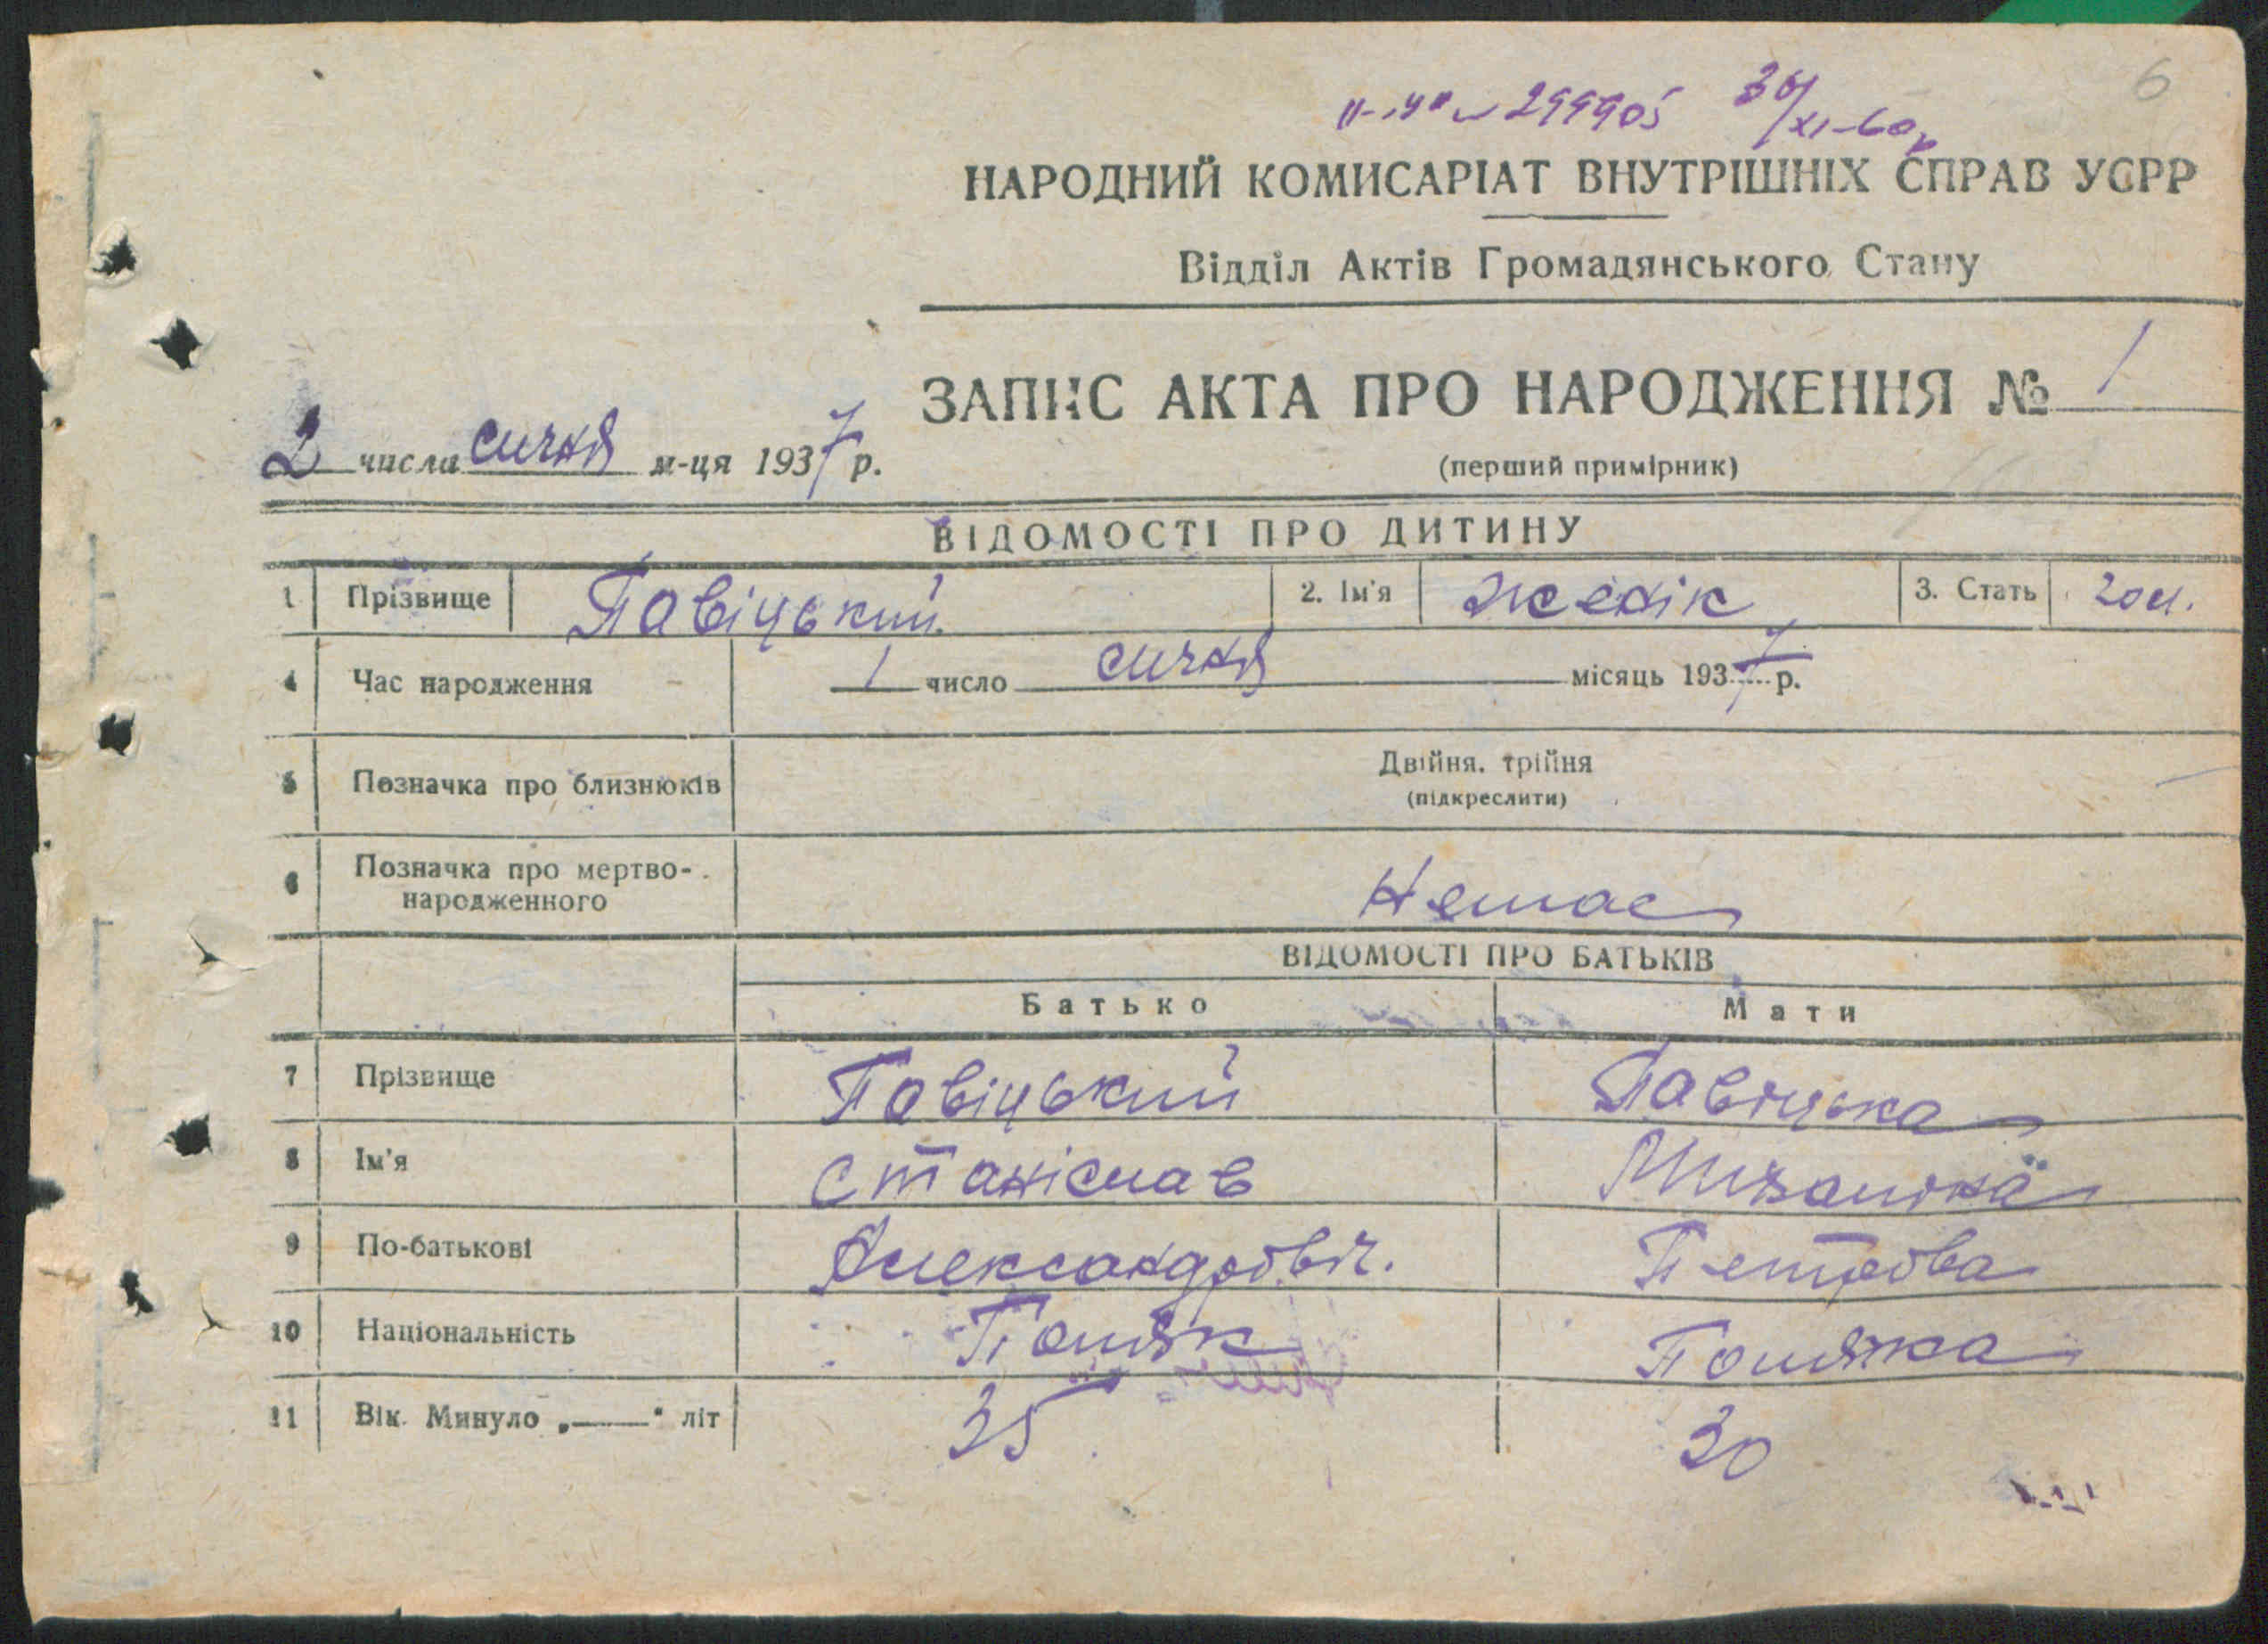 6
ІІ-УР № 299905 30/XI-60р
НАРОДНИЙ КОМИСАРІАТ ВНУТРІШНІХ СПРАВ УСРР
Відділ Актів Громадянського Стану
ЗАПИС АКТА ПРО НАРОДЖЕННЯ № 1
2 числа січня м-ця 1937 р.
(перший примірник)
ВІДОМОСТІ ПРО ДИТИНУ
1 Прізвище Павіцький 2. Ім'я Женік 3. Стать
4 Час народження 1 число січня місяць 1937 р.
5 Позначка про близнюків Двійня, трійня
(підкреслити)
6 Позначка про мертво-
народженного Немає
ВІДОМОСТІ ПРО БАТЬКІВ
Батько Мати
7 Прізвище Павіцький Павіцька
8 Ім'я Станіслав
9 По-батькові Александровіч. Петрова
10 Національність Поляк Полячка
11 Вік. Минуло „——" літ 35 30